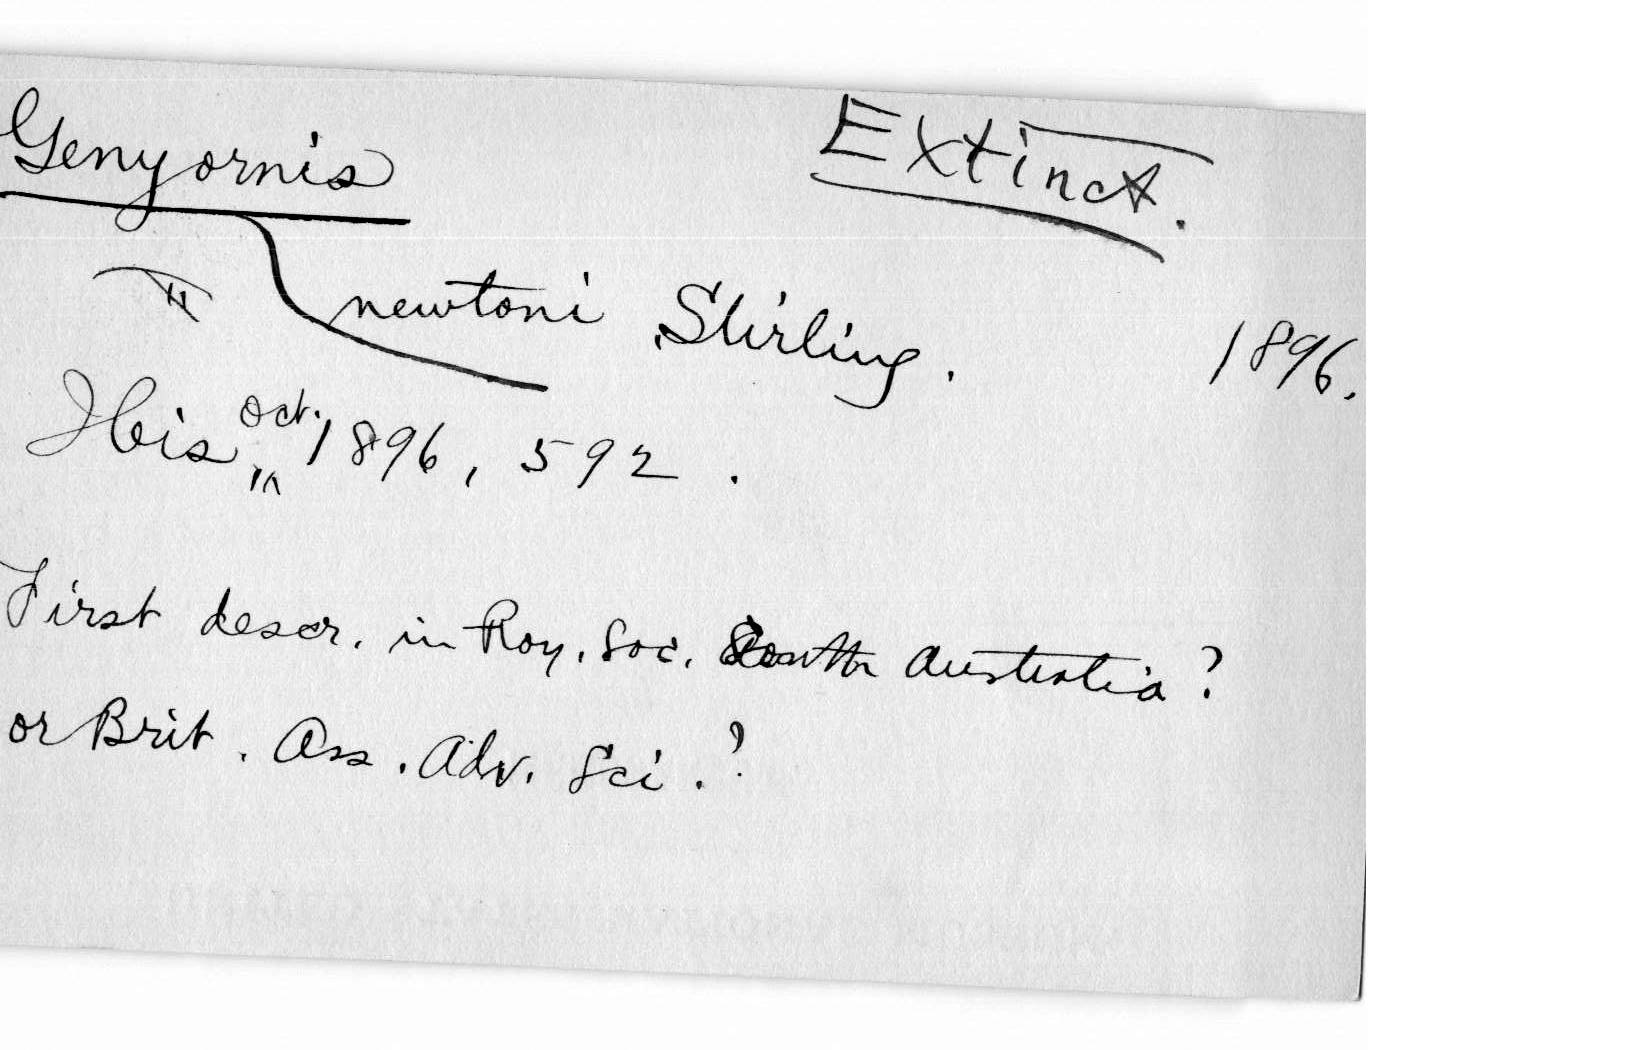 Genyornis Extinct.
" newtoni Stirling. 1896.
Ibis, Oct. 1896, 592.
First descr. in Roy. Soc. South Australia?
or Brit. Ass. Adv. Sci.?